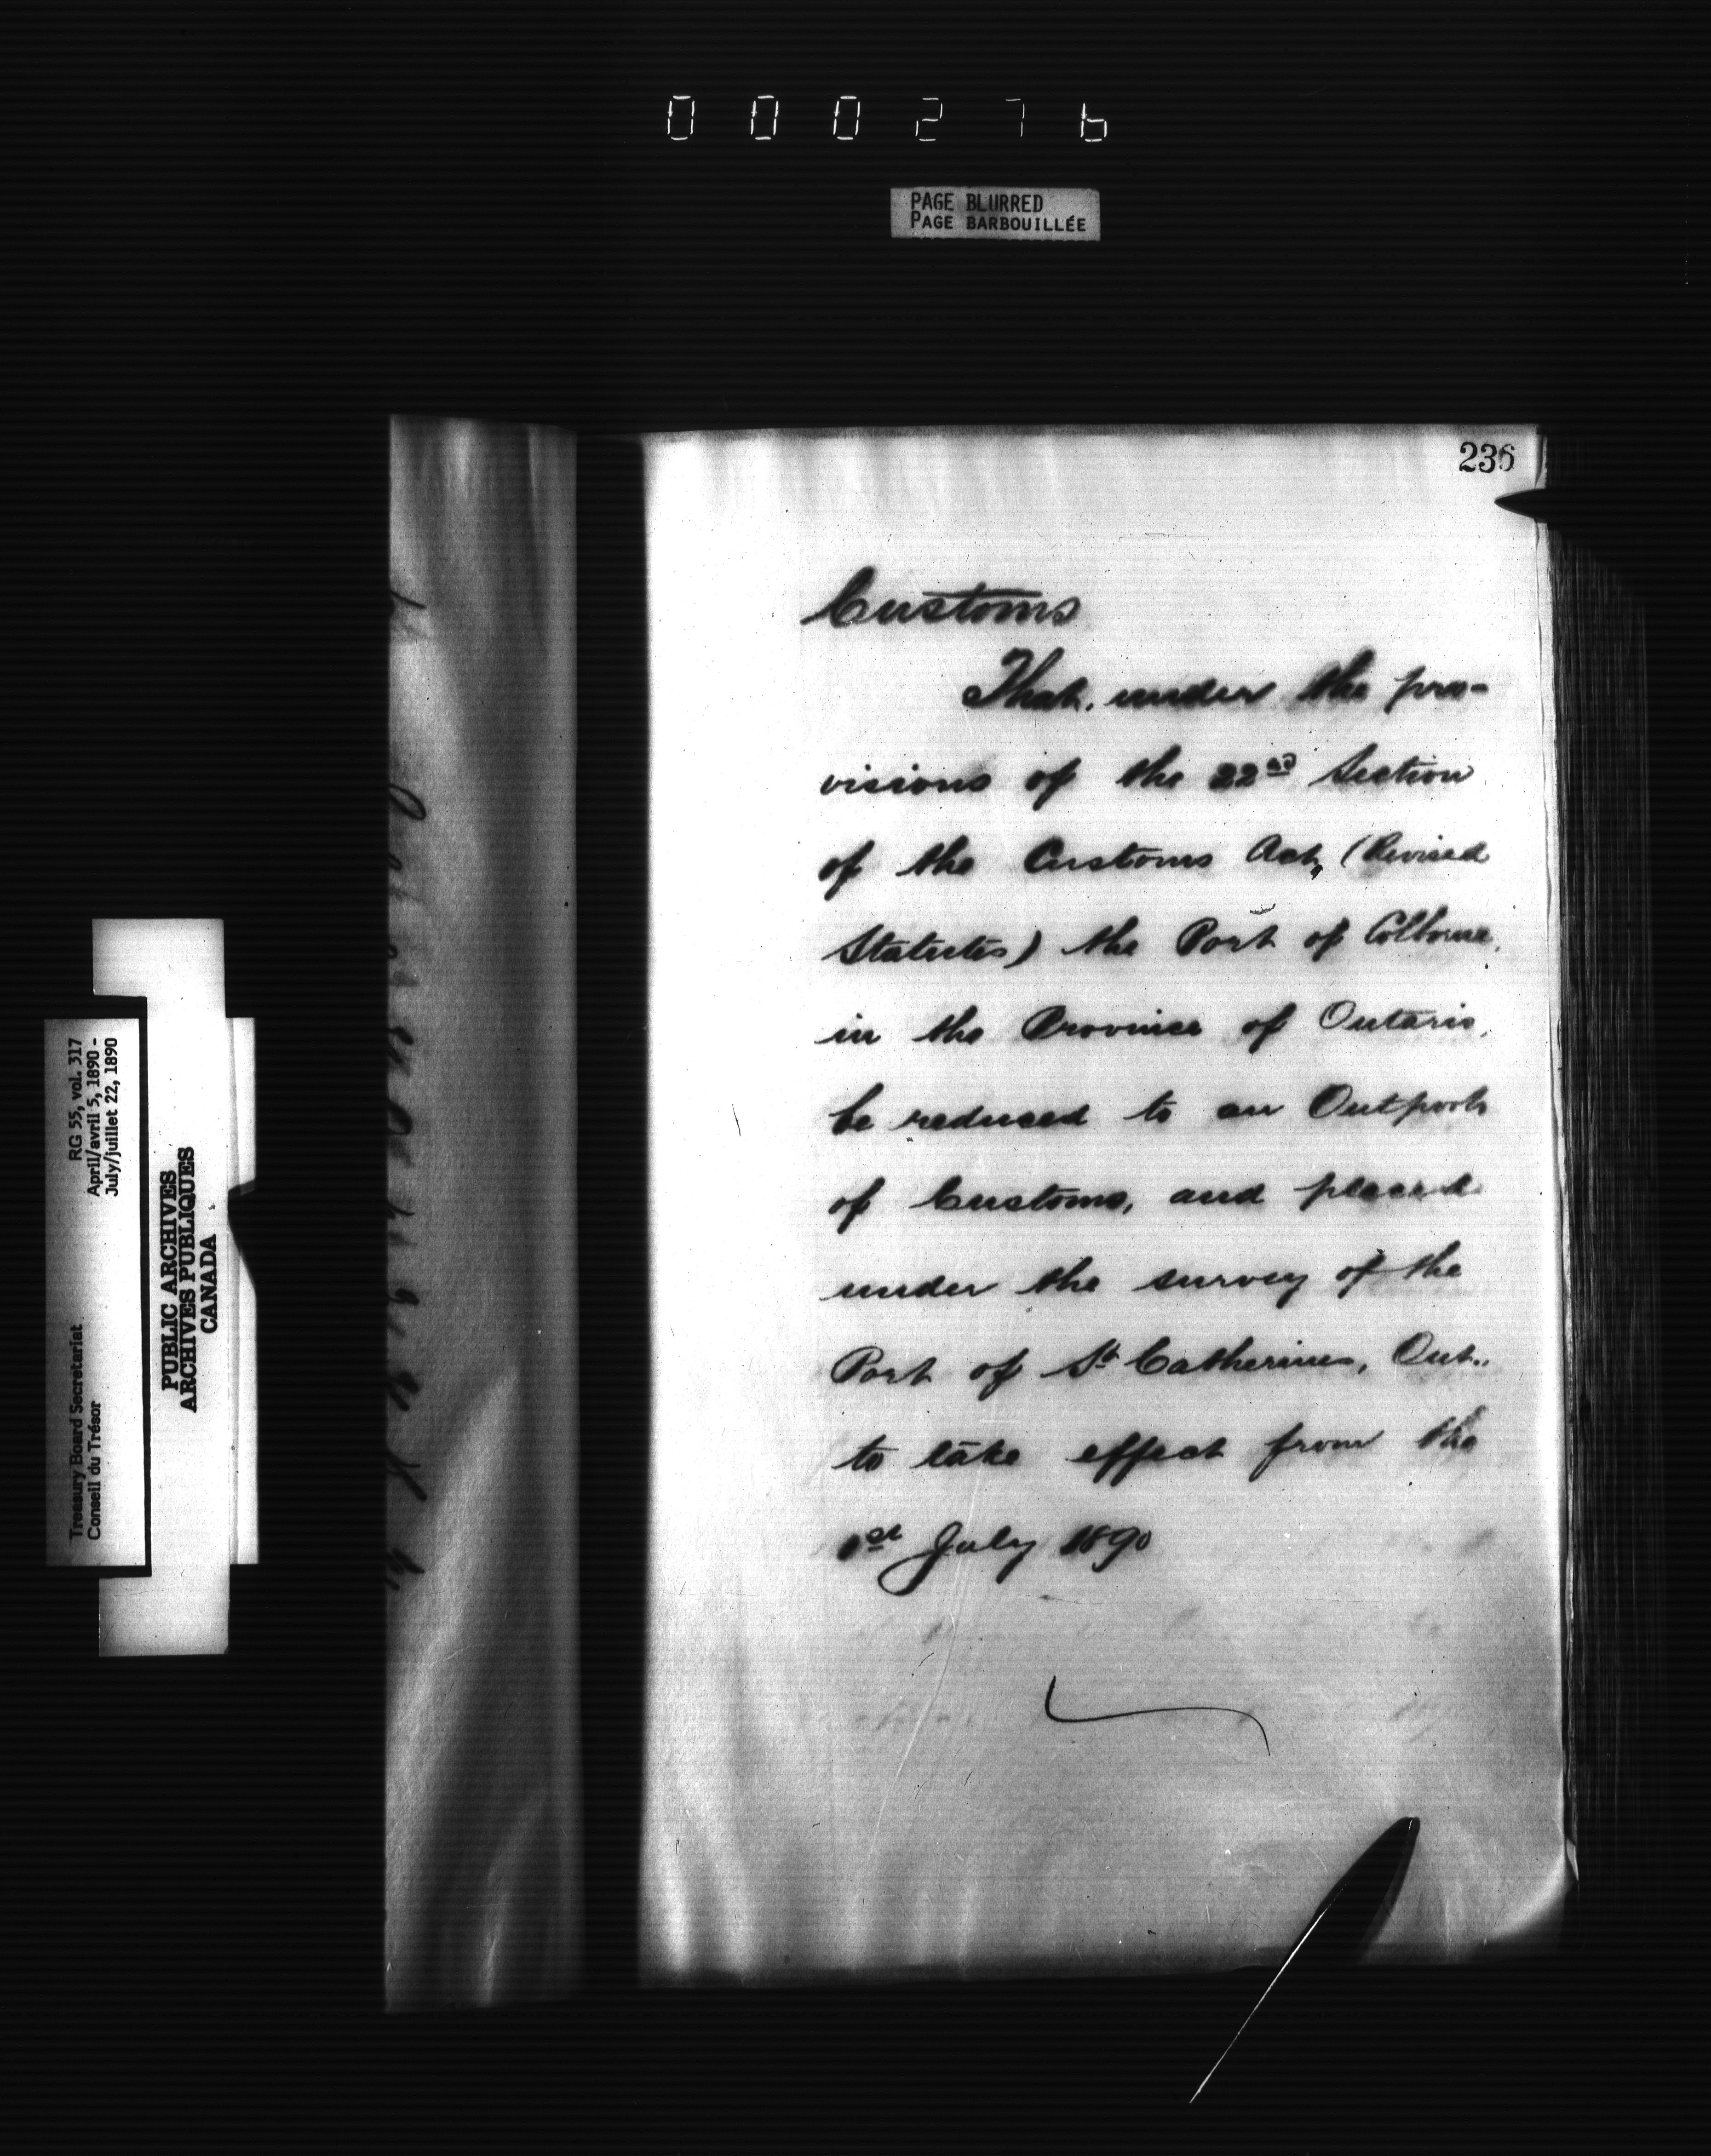 000276
PAGE BLURRED
PAGE BARBOUILLÉE
236
Customs
That, under the pro-
visions of the 22nd Section
of the Customs Act, (Revised
Statutes) the Port of Colborne,
in the Province of Ontario,
be reduced to an Outport
of Customs, and placed
under the survey of the
Port of St Catherines, Ont.,
to take effect from the
1st July 1890
RG 55, vol. 317
April/avril 5, 1890 -
July/juillet 22, 1890
Treasury Board Secretariat
Conseil du Trésor
PUBLIC ARCHIVES
ARCHIVES PUBLIQUES
CANADA